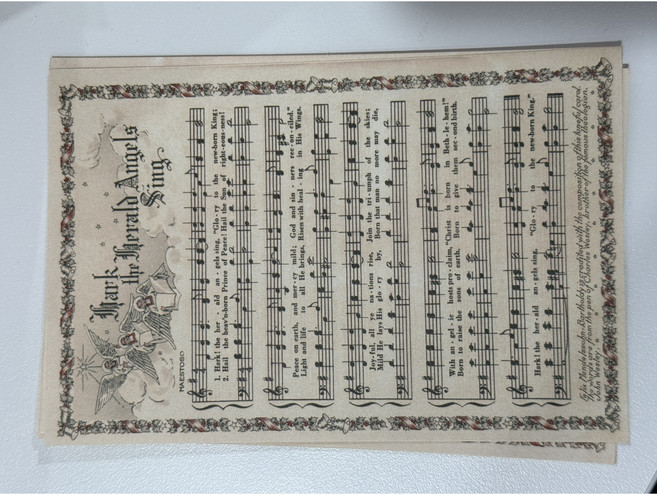 Hark
the Herald Angels
Sing
MAESTOSO
1. Hark! the her - ald an - gels sing, "Glo - ry to the new-born King;
2. Hail the heav'n-born Prince of Peace! Hail the Sun of right-eous-ness!
Peace on earth, and mer - cy mild; God and sin - ners rec - on - ciled."
Light and life to all He brings, Risen with heal - ing in His Wings.
Joy - ful, all ye na - tions rise, Join the tri - umph of the skies;
Mild He lays His glo - ry by, Born that man no more may die,
With an - gel - ic hosts pro - claim, "Christ is born in Beth - le - hem!"
Born to raise the sons of earth, Born to give them sec - ond birth.
Hark! the her - ald an - gels sing, "Glo - ry to the new-born King."
Felix Mendelssohn-Bartholdy is credited with the composition of this joyful carol.
The words are from the pen of Charles Wesley, brother of the famous theologian,
John Wesley.